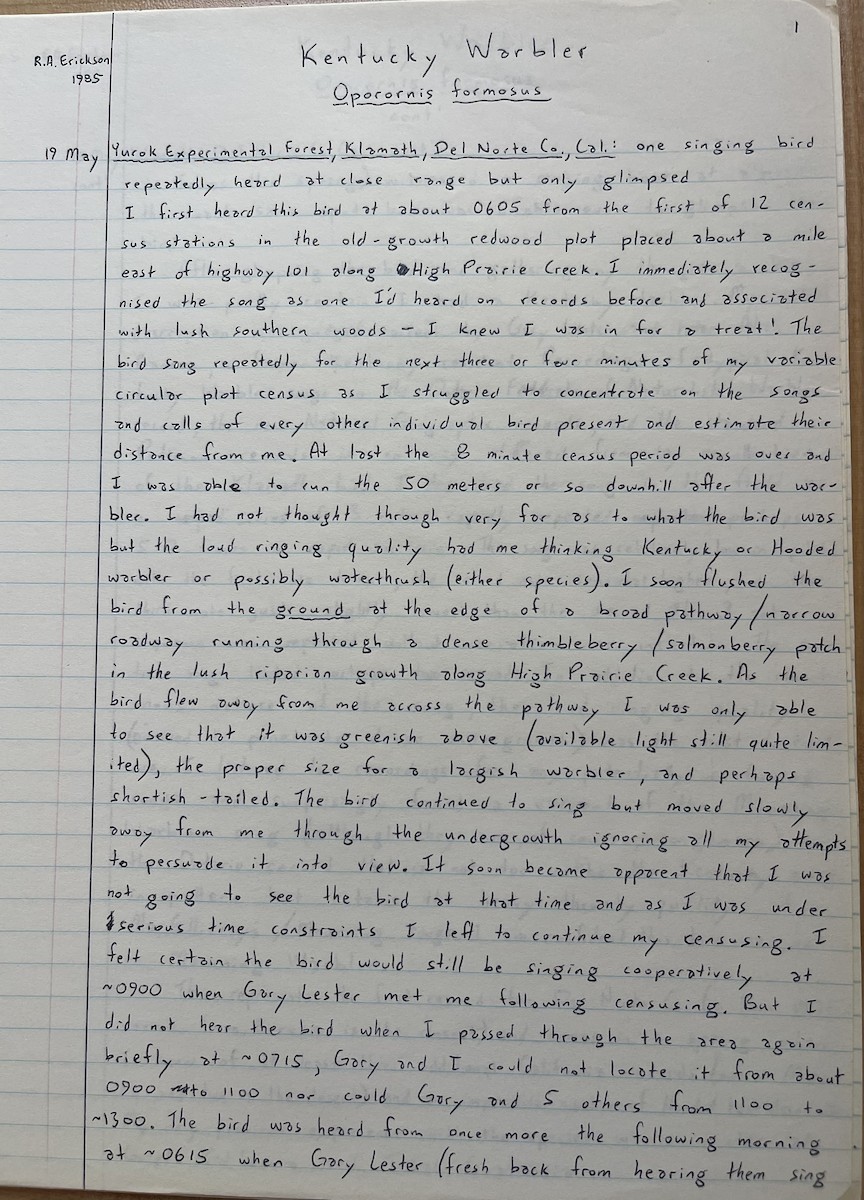 1
R.A. Erickson
1985
Kentucky Warbler
Oporornis formosus
19 May Yurok Experimental Forest, Klamath, Del Norte Co., Cal.: one singing bird
repeatedly heard at close range but only glimpsed
I first heard this bird at about 0605 from the first of 12 cen-
sus stations in the old-growth redwood plot placed about a mile
east of highway 101 along High Prairie Creek. I immediately recog-
nised the song as one I'd heard on records before and associated
with lush southern woods – I knew I was in for a treat! The
bird sang repeatedly for the next three or four minutes of my variable
circular plot census as I struggled to concentrate on the songs
and calls of every other individual bird present and estimate their
distance from me. At last the 8 minute census period was over and
I was able to run the 50 meters or so downhill after the war-
bler. I had not thought through very far as to what the bird was
but the loud ringing quality had me thinking Kentucky or Hooded
warbler or possibly waterthrush (either species). I soon flushed the
bird from the ground at the edge of a broad pathway/narrow
roadway running through a dense thimbleberry/salmonberry patch
in the lush riparian growth along High Prairie Creek. As the
bird flew away from me across the pathway I was only able
to see that it was greenish above (available light still quite lim-
ited), the proper size for a largish warbler, and perhaps
shortish-tailed. The bird continued to sing but moved slowly
away from me through the undergrowth ignoring all my attempts
to persuade it into view. It soon became apparent that I was
not going to see the bird at that time and as I was under
serious time constraints I left to continue my censusing. I
felt certain the bird would still be singing cooperatively at
~0900 when Gary Lester met me following censusing. But I
did not hear the bird when I passed through the area again
briefly at ~0715, Gary and I could not locate it from about
0900 to 1100 nor could Gary and 5 others from 1100 to
~1300. The bird was heard from once more the following morning
at ~0615 when Gary Lester (fresh back from hearing them sing